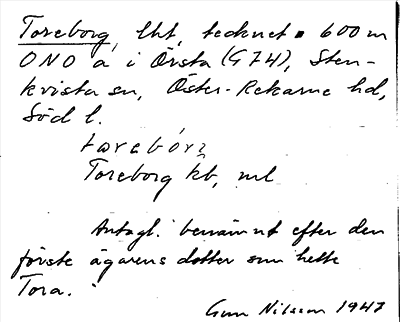 Toreborg, lht, tecknet . 600 m
ONO å i Örsta (G74), Sten-
kvista sn, Öster-Rekarne hd,
Söd l.
Toreborg kb, ml
Antagl. benämnt efter den
förste ägarens dotter som hette
Tora.
Gun Nilsson 1947